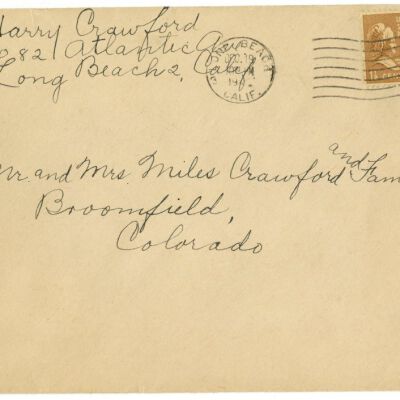 Harry Crawford
282 Atlantic
Long Beach 2, Calif
LONG BEACH
CALIF.
1½
Mr. and Mrs Miles Crawford and Fam
Broomfield,
Colorado